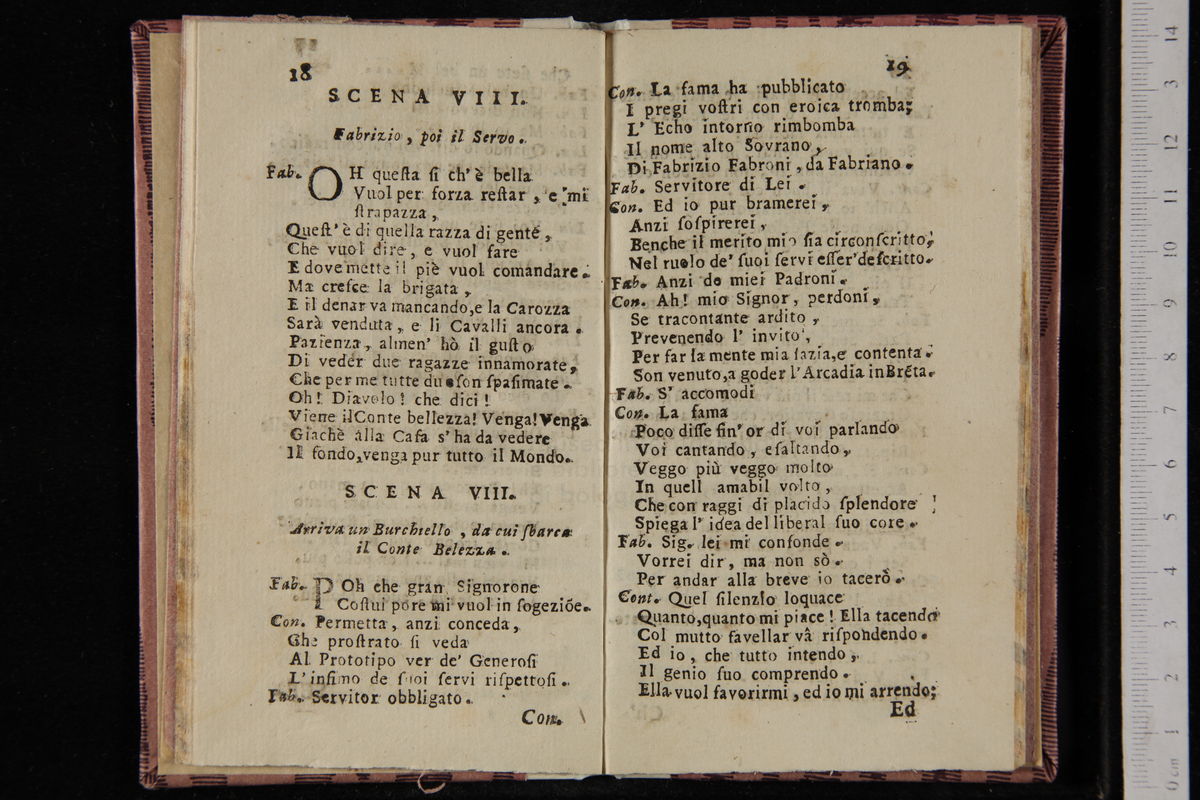 18
SCENA VIII.
Fabrizio, poi il Servo.
Fab. OH questa si ch'è bella
Vuol per forza restar, e mi
strapazza,
Quest'è di quella razza di gente,
Che vuol dire, e vuol fare
E dove mette il piè vuol comandare.
Ma cresce la brigata,
E il denar va mancando, e la Carozza
Sarà venduta, e li Cavalli ancora.
Pazienza, almen' hò il gusto
Di veder due ragazze innamorate,
Che per me tutte due son spasimate.
Oh! Diavolo! che dici!
Viene il Conte bellezza! Venga! Venga
Giachè alla Casa s'ha da vedere
Il fondo, venga pur tutto il Mondo.
SCENA VIII.
Arriva un Burchiello, da cui sbarca
il Conte Belezza.
Fab. POh che gran Signorone
Costui pore mi vuol in sogeziõe.
Con. Permetta, anzi conceda,
Che prostrato si veda
Al Prototipo ver de' Generosi
L'infimo de suoi servi rispettosi.
Fab. Servitor obbligato.
Con.
19
Con. La fama ha pubblicato
I pregi vostri con eroica tromba;
L' Echo intorno rimbomba
Il nome alto Sovrano,
Di Fabrizio Fabroni, da Fabriano.
Fab. Servitore di Lei.
Con. Ed io pur bramerei,
Anzi sospirerei,
Benche il merito mio sia circonscritto,
Nel ruolo de' suoi servi esser' descritto.
Fab. Anzi de miei Padroni.
Con. Ah! mio Signor, perdoni,
Se tracontante ardito,
Prevenendo l' invito,
Per far la mente mia sazia, e contenta.
Son venuto, a goder l'Arcadia in Brẽta.
Fab. S' accomodi
Con. La fama
Poco disse sin' or di voi parlando
Voi cantando, esaltando,
Veggo più veggo molto
In quell amabil volto,
Che con raggi di placido splendore
Spiega l' idea del liberal suo core.
Fab. Sig. lei mi confonde.
Vorrei dir, ma non sò.
Per andar alla breve io tacerò.
Cont. Quel silenzio loquace
Quanto, quanto mi piace! Ella tacendo
Col mutto favellar và rispondendo.
Ed io, che tutto intendo,
Il genio suo comprendo.
Ella vuol favorirmi, ed io mi arrendo;
Ed